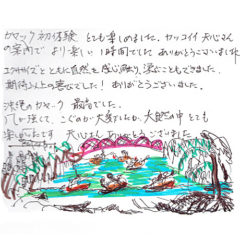 カヤック初体験 とても楽しめました。カッコイイ 天心さん
の案内で より楽しい1時間でした ありがとうございました
エクササイズとともに自然を感じ、遊ぶこともできました。
期待以上の喜びでした！ ありがとうございました。
カヤック 最高でした。
風が強くて、こぐのが大変でしたが、大自然の中 とても
楽しかったです 天心さん ありがとうございました